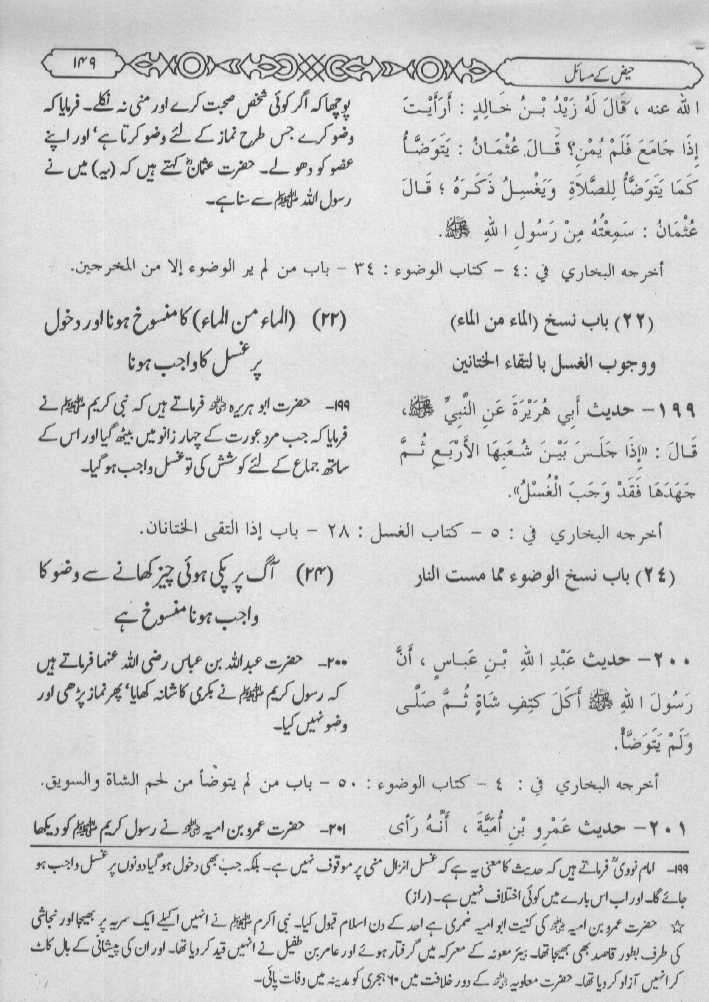 حیض کے مسائل
۱۴۹
الله عنه ، قَالَ لَهُ زَيْدُ بْنُ خَالِدٍ : أَرَأَيْتَ
إِذَا جَامَعَ فَلَمْ يُمْنِ؟ قَالَ عُثْمَانُ : يَتَوَضَّأُ
كَمَا يَتَوَضَّأُ لِلصَّلاَةِ وَيَغْسِلُ ذَكَرَهُ ؛ قَالَ
عُثْمَانُ : سَمِعْتُهُ مِنْ رَسُولِ اللهِ ﷺ.
پوچھا کہ اگر کوئی شخص صحبت کرے اور منی نہ نکلے۔ فرمایا کہ
وضو کرے جس طرح نماز کے لئے وضو کرتا ہے‘ اور اپنے
عضو کو دھو لے۔ حضرت عثمانؓ کہتے ہیں کہ (یہ) میں نے
رسول اللہ ﷺ سے سنا ہے۔
أخرجه البخاري في : ٤ – كتاب الوضوء : ٣٤ – باب من لم ير الوضوء إلا من المخرجين.
(٢٢) باب نسخ (الماء من الماء)
ووجوب الغسل بالتقاء الختانين
(۲۲) (الماء من الماء) کا منسوخ ہونا اور دخول
پر غسل کا واجب ہونا
١٩٩– حديث أَبِي هُرَيْرَةَ عَنِ النَّبِيِّ ﷺ ،
قَالَ : «إِذَا جَلَسَ بَيْنَ شُعَبِهَا الأَرْبَعِ ثُمَّ
جَهَدَهَا فَقَدْ وَجَبَ الْغُسْلُ».
۱۹۹۔ حضرت ابو ہریرہ ؓ فرماتے ہیں کہ نبی کریم ﷺ نے
فرمایا کہ جب مرد عورت کے چہار زانو میں بیٹھ گیا اور اس کے
ساتھ جماع کے لئے کوشش کی تو غسل واجب ہو گیا۔
أخرجه البخاري في : ٥ – كتاب الغسل : ٢٨ – باب إذا التقى الختانان.
(٢٤) باب نسخ الوضوء مما مست النار
(۲۴) آگ پر پکی ہوئی چیز کھانے سے وضو کا
واجب ہونا منسوخ ہے
٢٠٠– حديث عَبْدِ اللهِ بْنِ عَبَاسٍ ، أَنَّ
رَسُولَ اللهِ ﷺ أَكَلَ كَتِفِ شَاةٍ ثُمَّ صَلَّى
وَلَمْ يَتَوَضَّأْ.
۲۰۰۔ حضرت عبداللہ بن عباس رضی اللہ عنہما فرماتے ہیں
کہ رسول کریم ﷺ نے بکری کا شانہ کھایا‘ پھر نماز پڑھی اور
وضو نہیں کیا۔
أخرجه البخاري في : ٤ – كتاب الوضوء : ٥٠ – باب من لم يتوضأ من لحم الشاة والسويق.
٢٠١– حديث عَمْرِو بْنِ أُمَيَّةَ ، أَنَّهُ رَأى
۲۰۱۔ حضرت عمرو بن امیہ ؓ نے رسول کریم ﷺ کو دیکھا
۱۹۹۔ امام نوویؒ فرماتے ہیں کہ حدیث کا معنی یہ ہے کہ غسل انزال منی پر موقوف نہیں ہے۔ بلکہ جب بھی دخول ہو گیا دونوں پر غسل واجب ہو
جائے گا۔ اور اب اس بارے میں کوئی اختلاف نہیں ہے۔ (راز)
☆ حضرت عمرو بن امیہ ؓ کی کنیت ابو امیہ ضمری ہے احد کے دن اسلام قبول کیا۔ نبی اکرم ﷺ نے انہیں اکیلے ایک سریہ پر بھیجا اور نجاشی
کی طرف بطور قاصد بھی بھیجا تھا۔ بیئر معونہ کے معرکہ میں گرفتار ہوئے اور عامر بن طفیل نے انہیں قید کر دیا تھا۔ اور ان کی پیشانی کے بال کاٹ
کر انہیں آزاد کر دیا تھا۔ حضرت معاویہ ؓ کے دور خلافت میں ۶۰ ہجری کو مدینہ میں وفات پائی۔